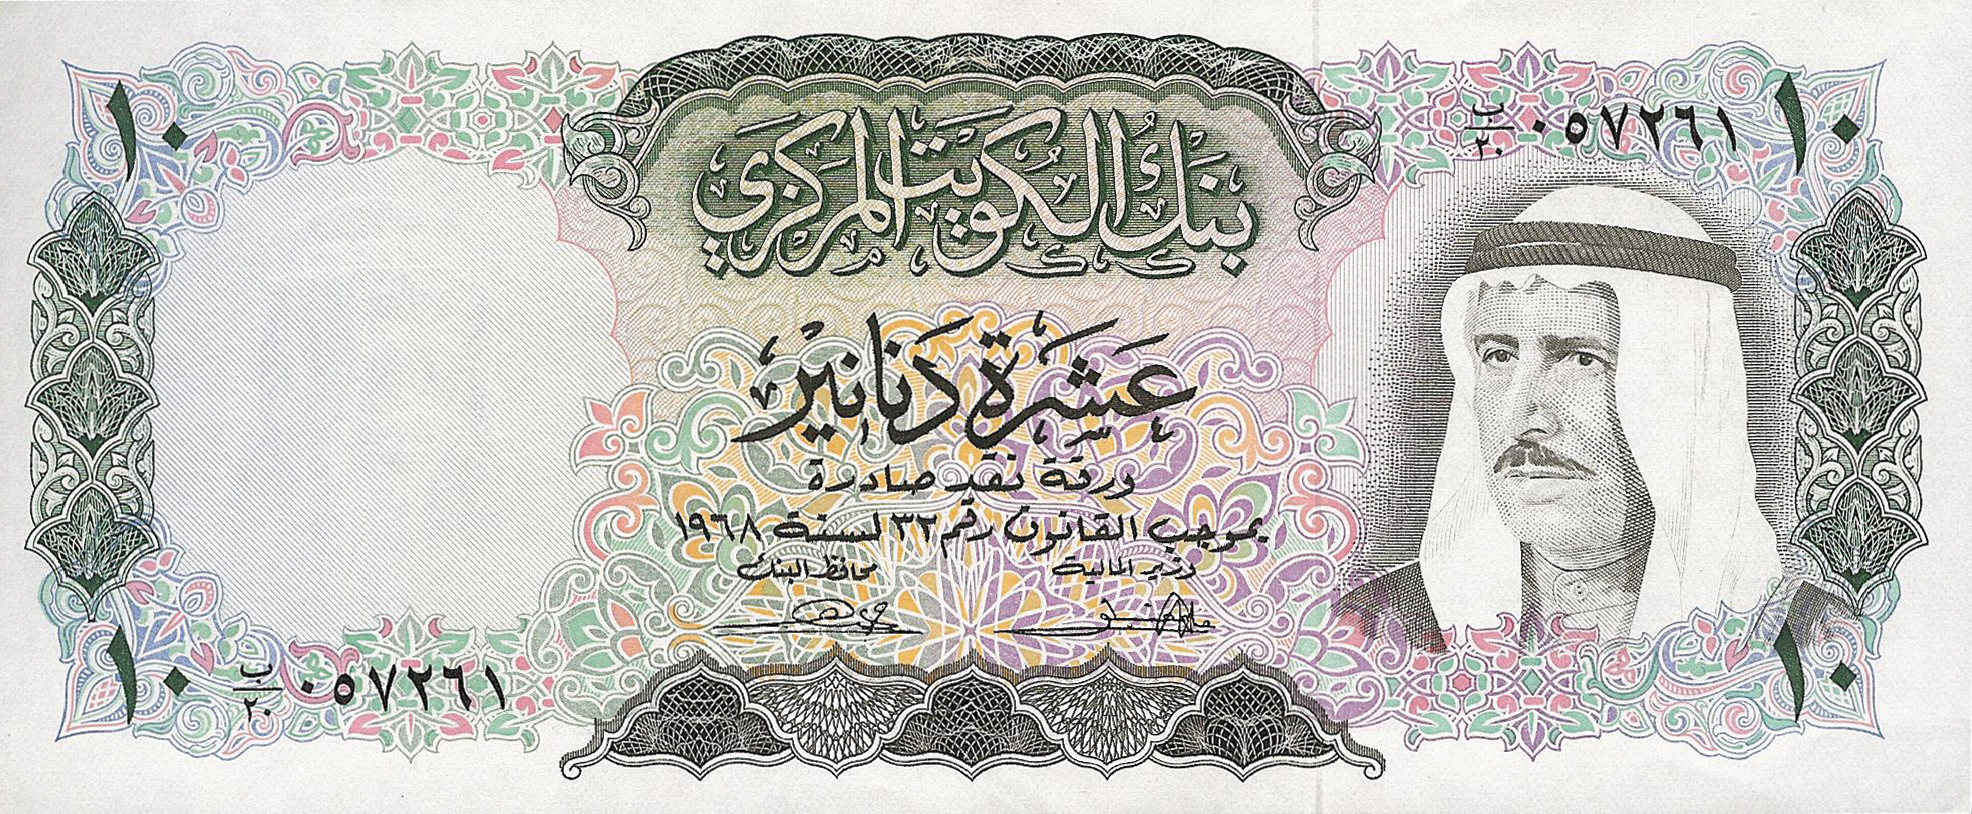 ١٠
ب/٢٠ ٠٥٧٢٦١
١٠
بنك الكويت المركزي
عشرة دنانير
ورقة نقد صادرة
بموجب القانون رقم ٣٢ لسنة ١٩٦٨
وزير المالية
محافظ البنك
١٠
ب/٢٠ ٠٥٧٢٦١
١٠